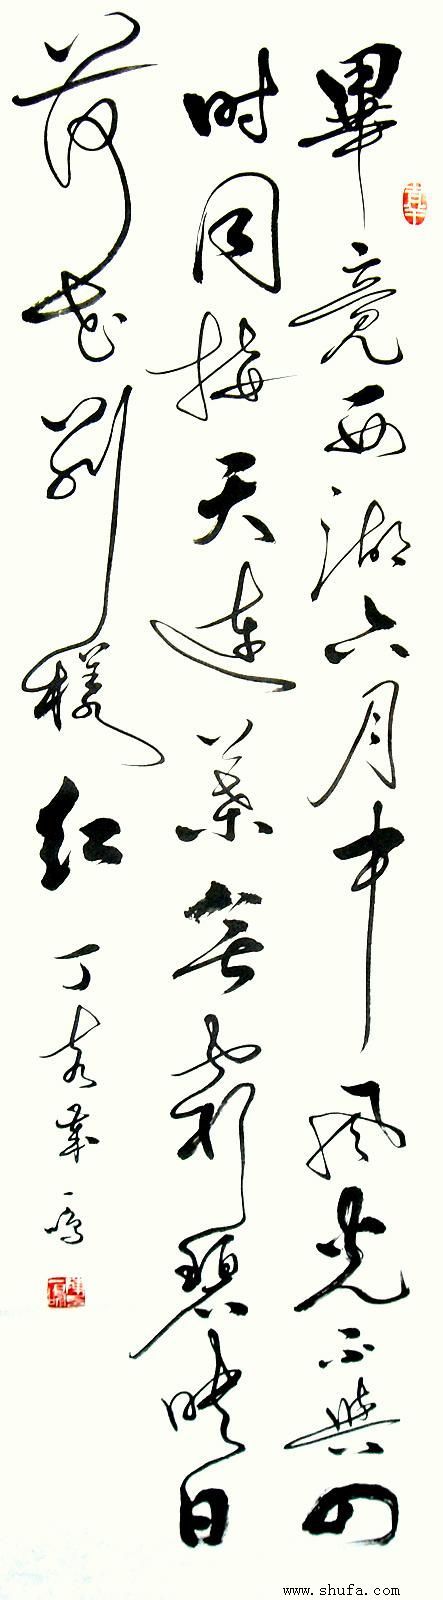 畢竟西湖六月中風光不與四
时同接天连葉無窮碧映日
荷花别樣红
丁亥一鳴
www.shufa.com